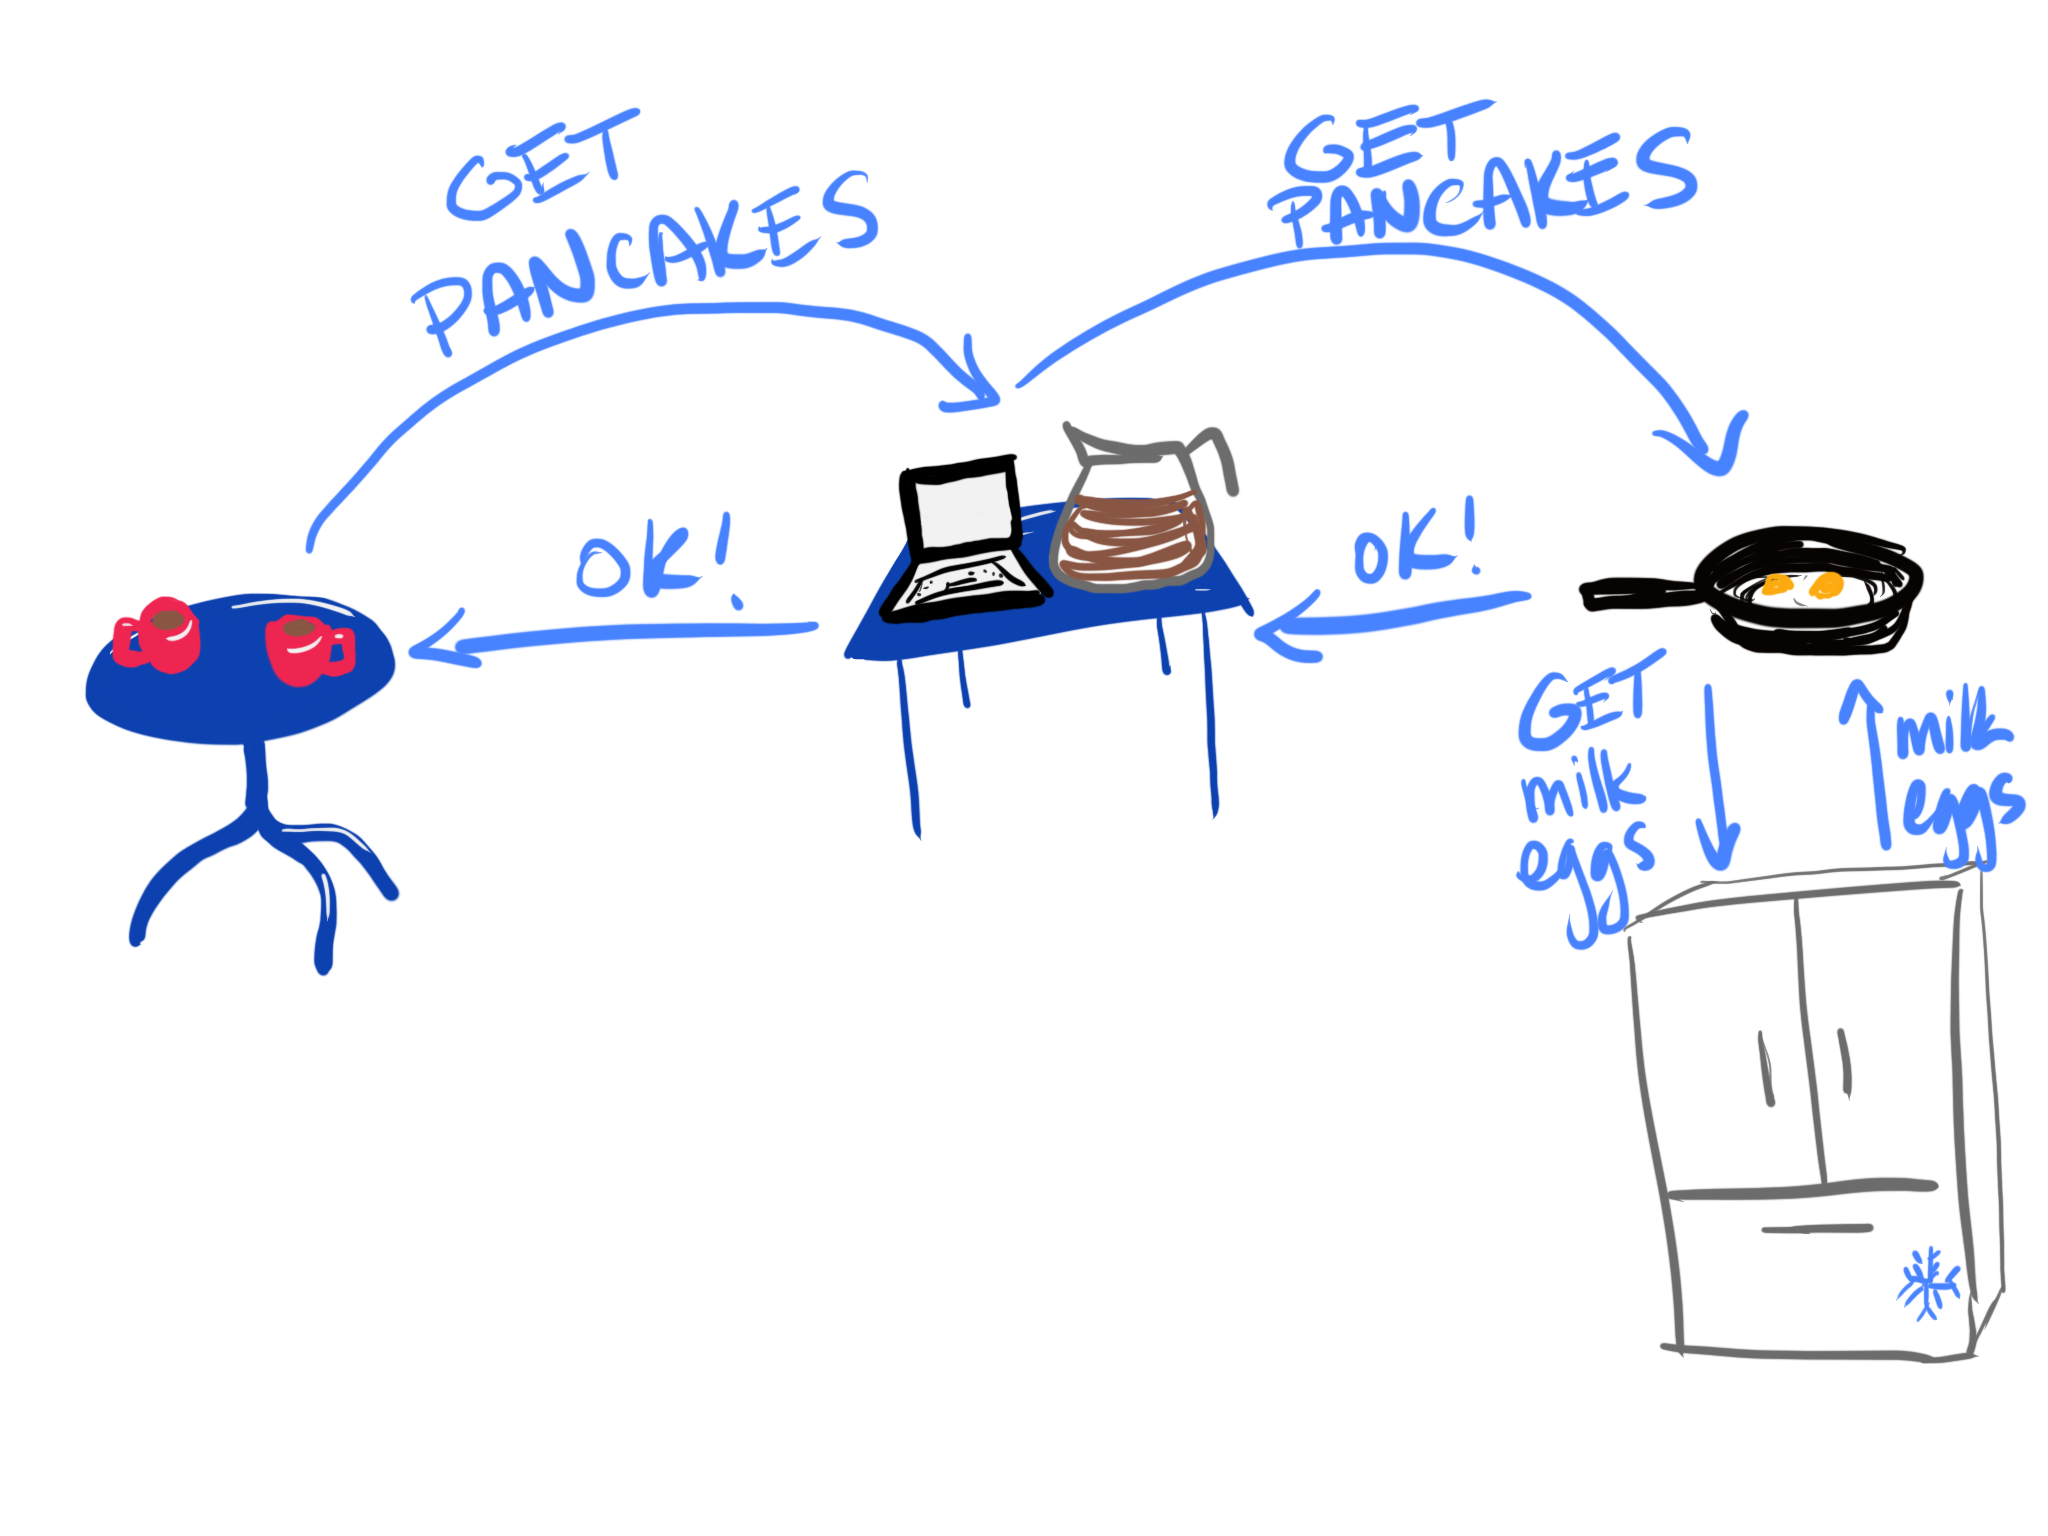 GET
PANCAKES
GET
PANCAKES
OK!
OK!
GET
milk
eggs
milk
eggs